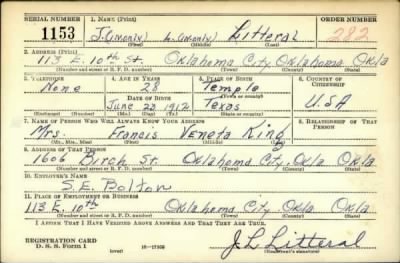 SERIAL NUMBER 1. NAME (Print) ORDER NUMBER
1153 J.(only) L.(only) Litteral 282
(First) (Middle) (Last)
2. ADDRESS (Print)
113 E. 10th St. Oklahoma City, Oklahoma Okla
(Number and street or R. F. D. number) (Town) (County) (State)
3. TELEPHONE 4. AGE IN YEARS 5. PLACE OF BIRTH 6. COUNTRY OF CITIZENSHIP
None 28 Temple
DATE OF BIRTH (Town or county)
June 23 1912 Texas U.S.A
(Exchange) (No.) (Mo.) (Day) (Yr.) (State or country)
7. NAME OF PERSON WHO WILL ALWAYS KNOW YOUR ADDRESS 8. RELATIONSHIP OF THAT PERSON
Mrs. Francis Veneta King
(Mr., Mrs., Miss) (First) (Middle) (Last)
9. ADDRESS OF THAT PERSON
1606 Birch St. Oklahoma City. Okla Okla.
(Number and street or R. F. D. number) (Town) (County) (State)
10. EMPLOYER'S NAME
S.E. Bolton
11. PLACE OF EMPLOYMENT OR BUSINESS
113 E. 10th Oklahoma City. Okla. Okla
(Number and street or R. F. D. number) (Town) (County) (State)
I AFFIRM THAT I HAVE VERIFIED ABOVE ANSWERS AND THAT THEY ARE TRUE.
REGISTRATION CARD
D. S. S. Form 1 (over) 16—17105 J L Litteral
(Registrant's signature)